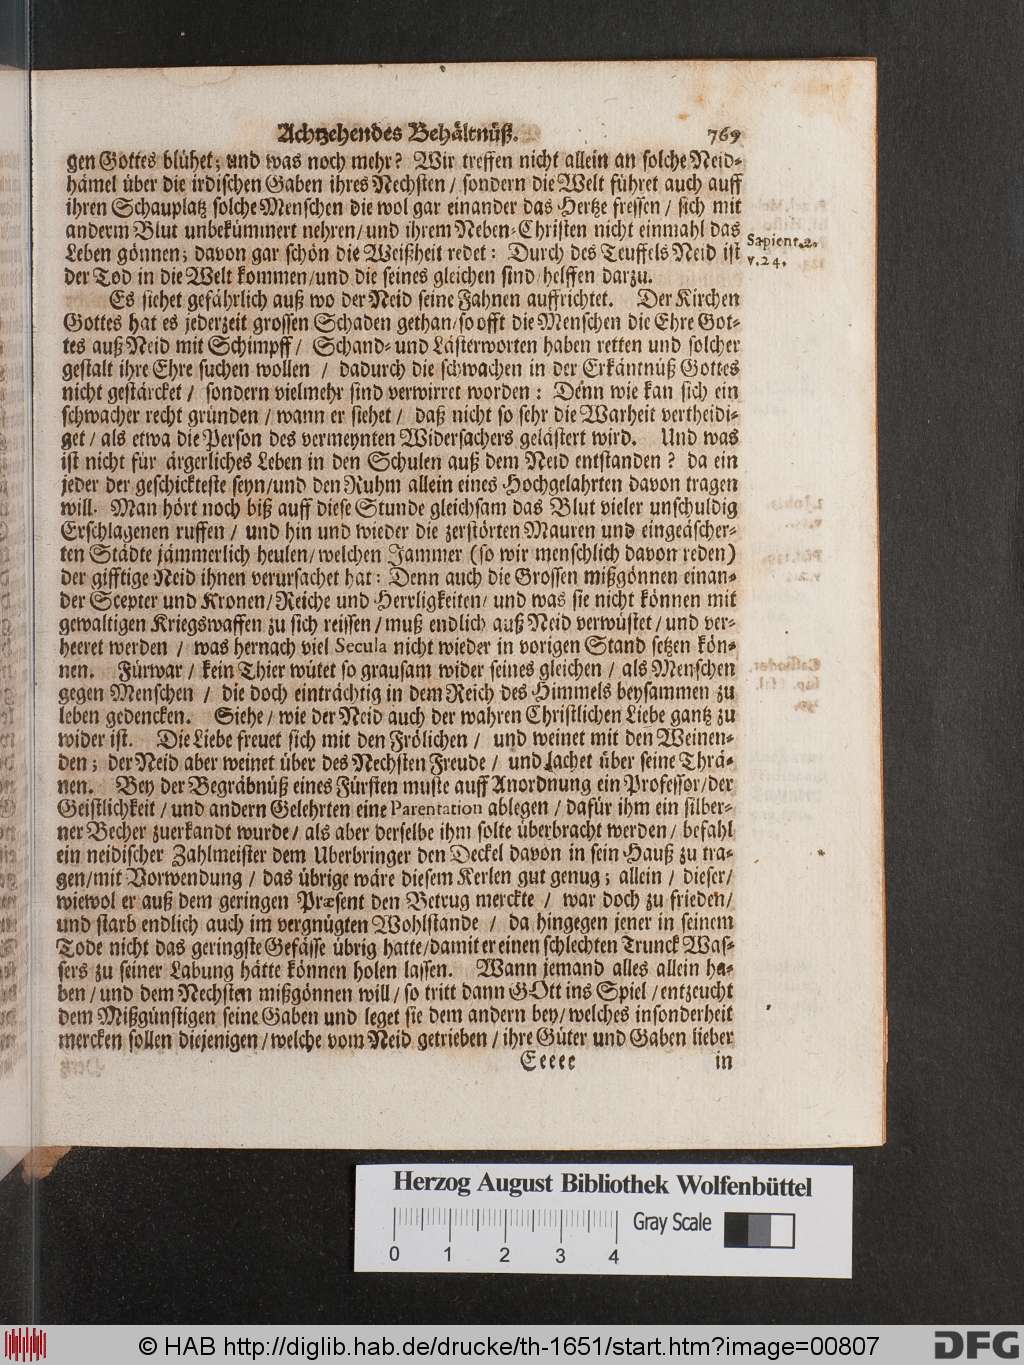 Achtzehendes Behältnüß. 769
gen Gottes blühet; und was noch mehr? Wir treffen nicht allein an solche Neid-
hämel über die irdischen Gaben ihres Nechsten / sondern die Welt führet auch auff
ihren Schauplatz solche Menschen die wol gar einander das Hertze fressen / sich mit
anderm Blut unbekümmert nehren / und ihrem Neben-Christen nicht einmahl das
Leben gönnen; davon gar schön die Weißheit redet: Durch des Teuffels Neid ist
Sapient. 2.
v. 24.
der Tod in die Welt kommen / und die seines gleichen sind / helffen darzu.
Es siehet gefährlich auß wo der Neid seine Fahnen auffrichtet. Der Kirchen
Gottes hat es jederzeit grossen Schaden gethan / so offt die Menschen die Ehre Got-
tes auß Neid mit Schimpff / Schand- und Lästerworten haben retten und solcher
gestalt ihre Ehre suchen wollen / dadurch die schwachen in der Erkäntnüß Gottes
nicht gestärcket / sondern vielmehr sind verwirret worden: Denn wie kan sich ein
schwacher recht gründen / wann er siehet / daß nicht so sehr die Warheit vertheidi-
get / als etwa die Person des vermeynten Widersachers gelästert wird. Und was
ist nicht für ärgerliches Leben in den Schulen auß dem Neid entstanden? da ein
jeder der geschickteste seyn / und den Ruhm allein eines Hochgelahrten davon tragen
will. Man hört noch biß auff diese Stunde gleichsam das Blut vieler unschuldig
Erschlagenen ruffen / und hin und wieder die zerstörten Mauren und eingeäscher-
ten Städte jämmerlich heulen / welchen Jammer (so wir menschlich davon reden)
der gifftige Neid ihnen verursachet hat: Denn auch die Grossen mißgönnen einan-
der Scepter und Kronen / Reiche und Herrligkeiten / und was sie nicht können mit
gewaltigen Kriegswaffen zu sich reissen / muß endlich auß Neid verwüstet / und ver-
heeret werden / was hernach viel Secula nicht wieder in vorigen Stand setzen kön-
nen. Fürwar / kein Thier wütet so grausam wider seines gleichen / als Menschen
gegen Menschen / die doch einträchtig in dem Reich des Himmels beysammen zu
leben gedencken. Siehe / wie der Neid auch der wahren Christlichen Liebe gantz zu
wider ist. Die Liebe freuet sich mit den Frölichen / und weinet mit den Weinen-
den; der Neid aber weinet über des Nechsten Freude / und lachet über seine Thrä-
nen. Bey der Begräbnüß eines Fürsten muste auff Anordnung ein Professor / der
Geistlichkeit / und andern Gelehrten eine Parentation ablegen / dafür ihm ein silber-
ner Becher zuerkandt wurde / als aber derselbe ihm solte überbracht werden / befahl
ein neidischer Zahlmeister dem Uberbringer den Deckel davon in sein Hauß zu tra-
gen / mit Vorwendung / das übrige wäre diesem Kerlen gut genug; allein / dieser /
wiewol er auß dem geringen Præsent den Betrug merckte / war doch zu frieden /
und starb endlich auch im vergnügten Wohlstande / da hingegen jener in seinem
Tode nicht das geringste Gefässe übrig hatte / damit er einen schlechten Trunck Was-
sers zu seiner Labung hätte können holen lassen. Wann jemand alles allein ha-
ben / und dem Nechsten mißgönnen will / so tritt dann GOtt ins Spiel / entzeucht
dem Mißgünstigen seine Gaben und leget sie dem andern bey / welches insonderheit
mercken sollen diejenigen / welche vom Neid getrieben / ihre Güter und Gaben lieber
Eeeee in
Herzog August Bibliothek Wolfenbüttel
Gray Scale
0 1 2 3 4
© HAB http://diglib.hab.de/drucke/th-1651/start.htm?image=00807
DFG